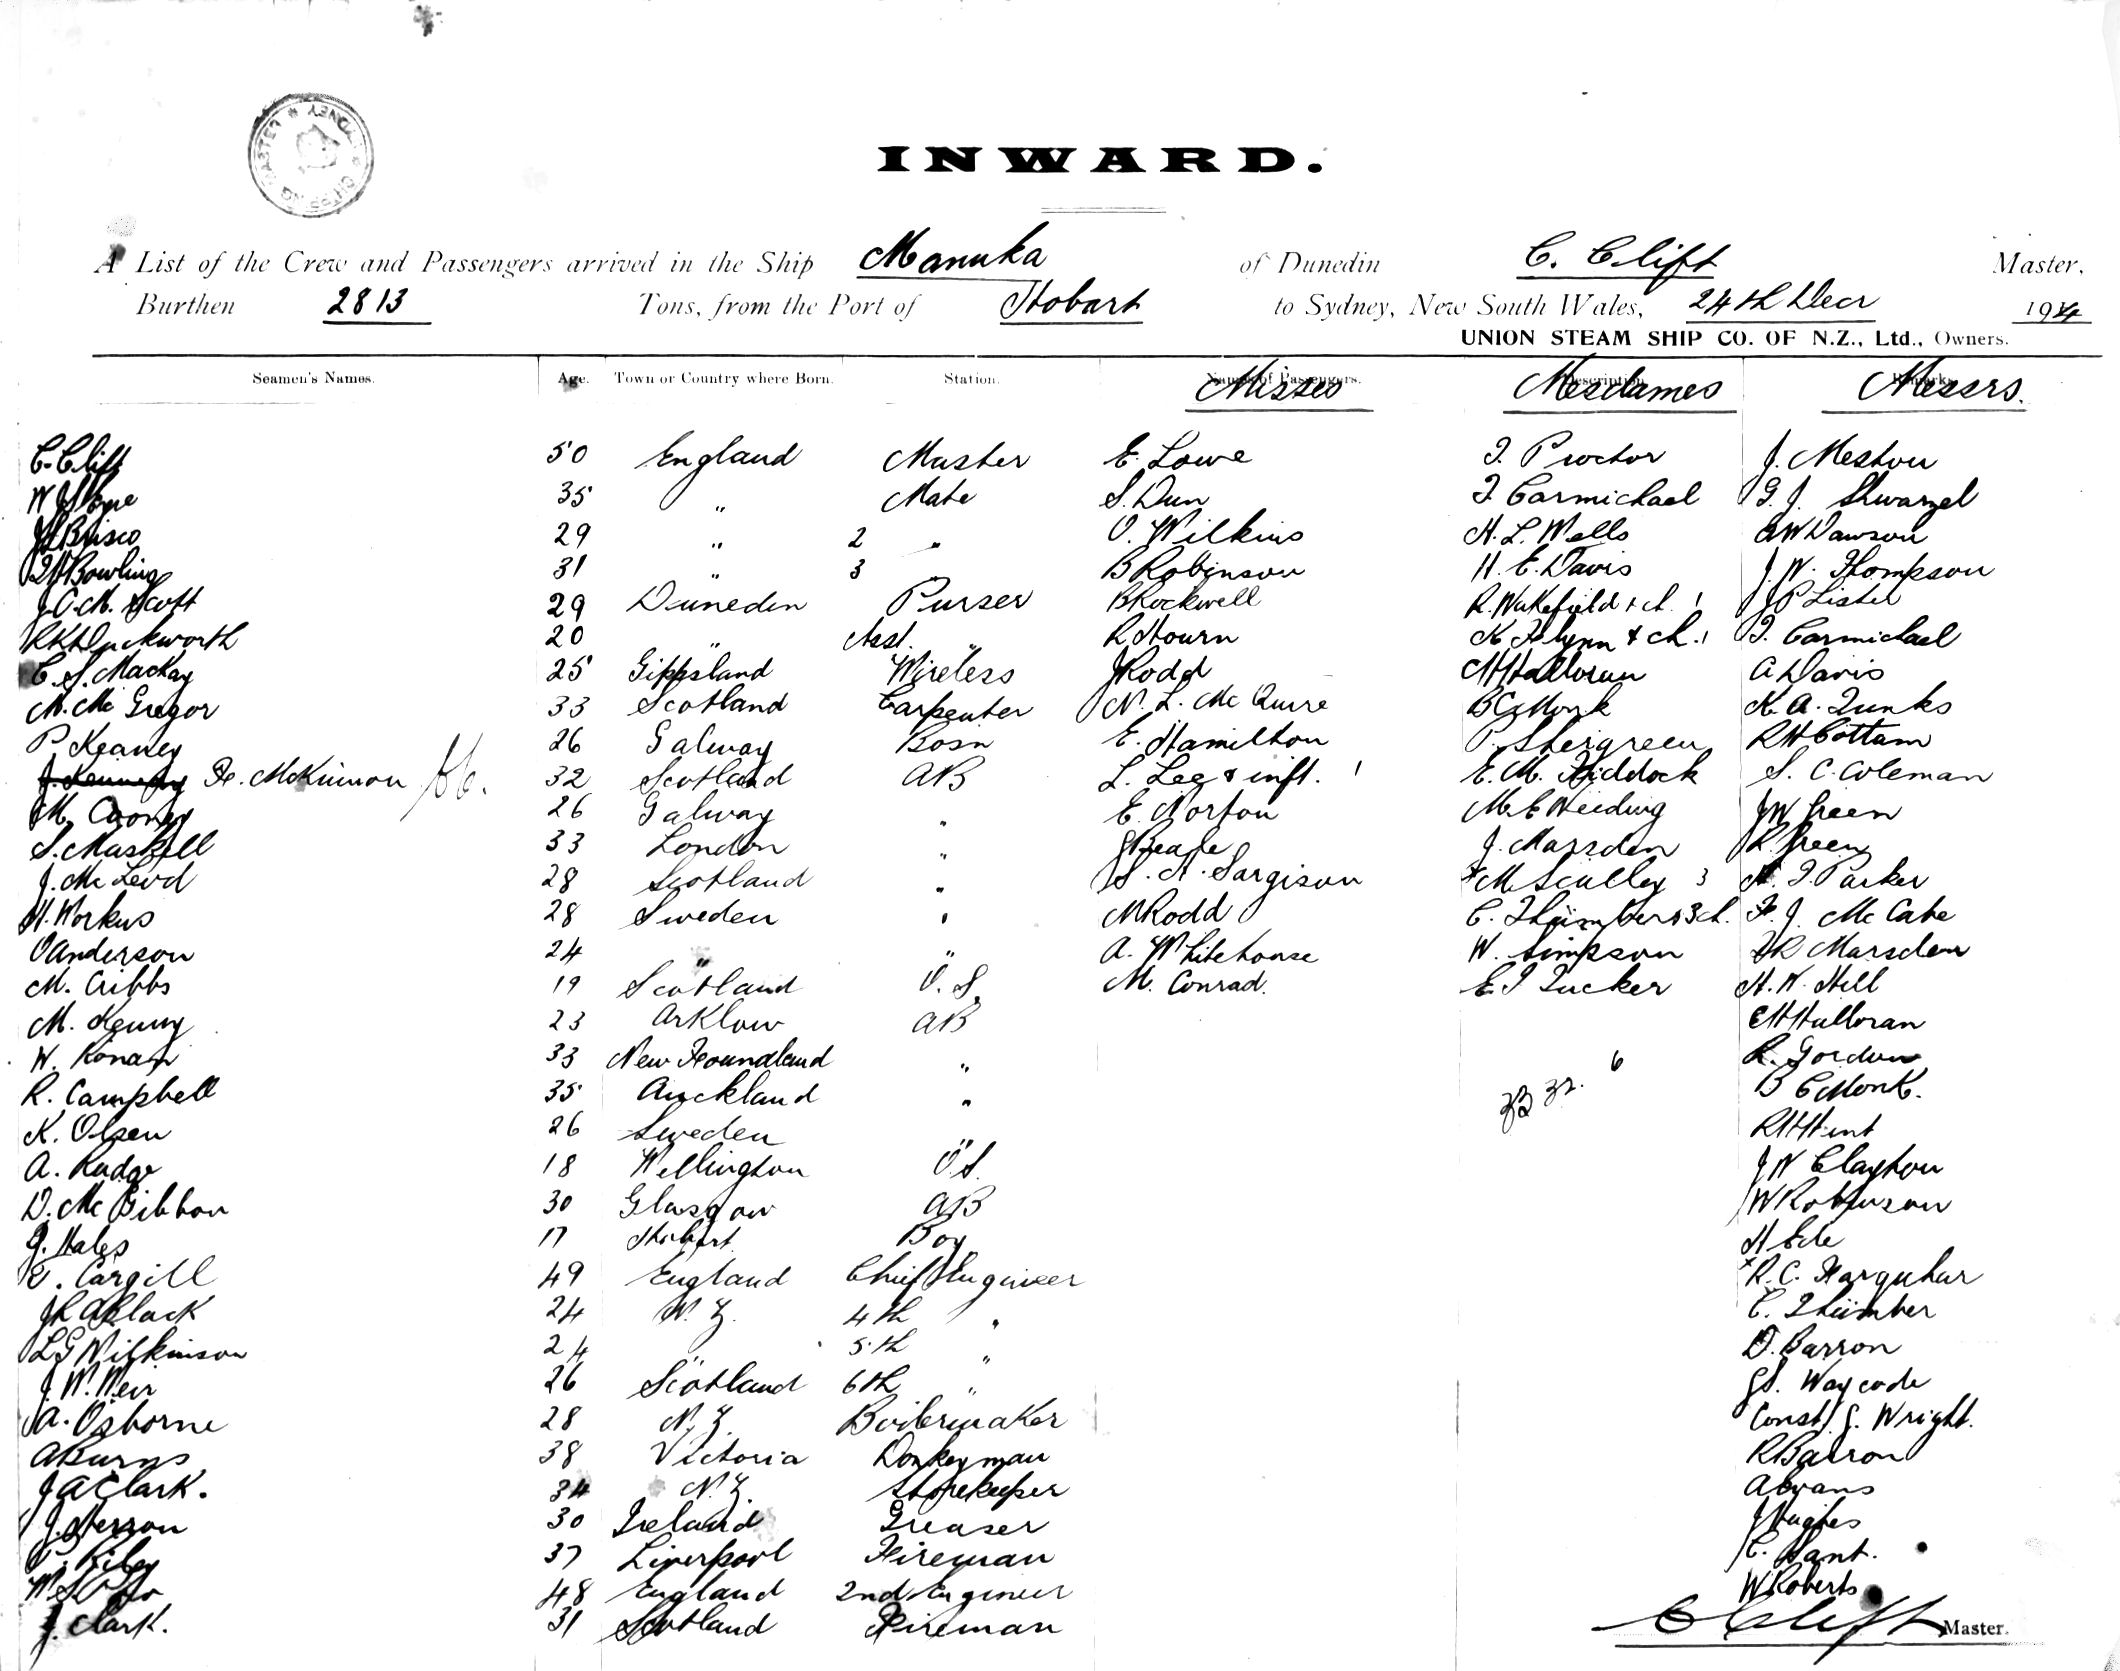 SHIPPING MASTER * SYDNEY *
INWARD.
A List of the Crew and Passengers arrived in the Ship Manuka of Dunedin C. Clift Master,
Burthen 2813 Tons, from the Port of Hobart to Sydney, New South Wales, 24th Decr 1914
UNION STEAM SHIP CO. OF N.Z., Ltd., Owners.
Seamen's Names. Age. Town or Country where Born. Station. Names of Passengers. Description Remarks.
Misses Mesdames Messrs.
C. Clift 50 England Master E. Lowe T. Proctor J. Meston
35 " Mate S. Dun T Carmichael G. J. Shwarzel
Brisco 29 " 2 " O. Wilkins H. L. Wells Dawson
Bowling 31 " 3 " B Robinson H. E. Davis J. W. Thompson
J. C. M. Scott 29 Dunedin Purser B Rockwell R. Wakefield & ch. 1 J P Lister
R K Duckworth 20 " Asst. " R Hourn K Flynn & ch. 1 T. Carmichael
C. S. Mackay 25 Gippsland Wireless J Rodd Halloran A Davis
M. Mc Gregor 33 Scotland Carpenter N. L. Mc Quire B C Monk K. A. Junks
P Keaney 26 Galway Bosn E. Hamilton P. Shergreen R H Cottam
J. Kennedy McKinnon 32 Scotland AB L. Leg & inft. 1 E. M. Kiddock S. C. Coleman
M. Cooney 26 Galway " E. Norton M. E Weeding J W Green
S. Maskell 33 London " J. Marsden R. Green
J. Mc Leod 28 Scotland " S. A. Sargison M Sculley 3 H. J. Parker
H. Workus 28 Sweden " M Rodd C. Thümber & 3 ch. F. J. Mc Cabe
O Anderson 24 " " A. Whitehouse W. Simpson R Marsden
M. Cribbs 19 Scotland O. S. M. Conrad. E J Tucker H. W. Hill
M. Kenny 23 Arklow AB Halloran
W. Ronan 33 New Foundland " 6 R. Gordon
R. Campbell 35 Auckland " B C Monk.
K. Olsen 26 Sweden " R H Hunt
A. Rudge 18 Wellington O.S. J W Clayton
D. Mc Gibbon 30 Glasgow AB W Robinson
G. Hales 17 Hobart Boy H Ede
Cargill 49 England Chief Engineer R. C. Farquhar
Black 24 N. Z. 4th " C. Thümber
L G Wilkinson 24 " 5th " D. Barron
J. W. Weir 26 Scotland 6th " Waycode
A. Osborne 28 N. Z. Boilermaker Const. J. Wright.
A Burns 38 Victoria Donkeyman R Barron
J A Clark. 34 N. Z. Storekeeper A Evans
J. Herron 30 Ireland Greaser J Hughes
Riley 37 Liverpool Fireman C. Sant.
48 England 2nd Engineer W Roberts
J. Clark. 31 Scotland Fireman
C Clift Master.